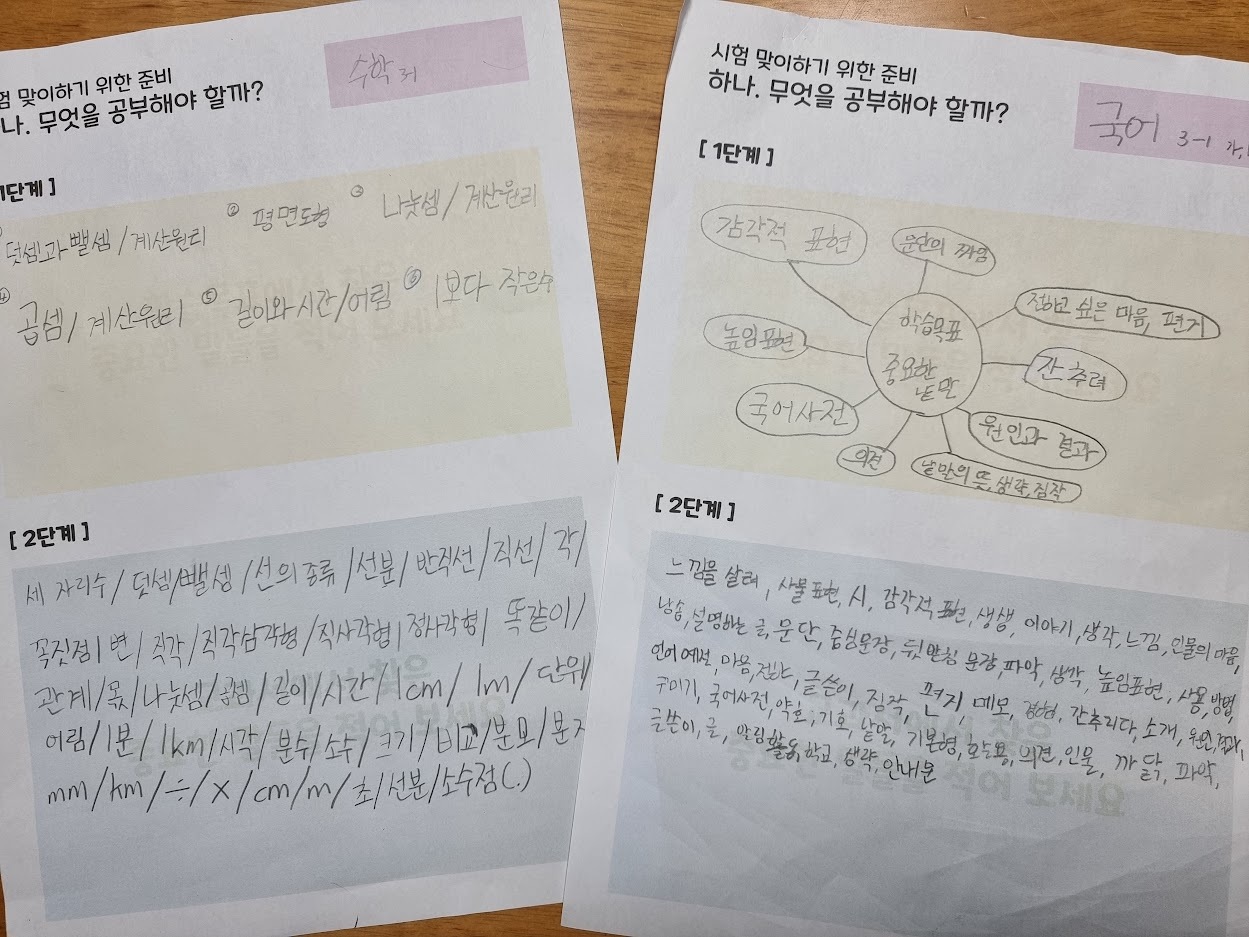 험 맞이하기 위한 준비
나. 무엇을 공부해야 할까?
수학 3-1
1단계 ]
덧셈과 뺄셈 / 계산원리 ② 평면도형 ③ 나눗셈 / 계산원리
④ 곱셈 / 계산원리 ⑤ 길이와 시간 / 어림 ⑥ 1보다 작은수
[ 2단계 ]
세 자리수 / 덧셈 / 뺄셈 / 선의 종류 / 선분 / 반직선 / 직선 / 각 /
꼭짓점 / 변 / 직각 / 직각삼각형 / 직사각형 / 정사각형 / 똑같이 /
관계 / 몫 / 나눗셈 / 곱셈 / 길이 / 시간 / 1cm / 1m / 단위
어림 / 1분 / 1km / 시각 / 분수 / 소수 / 크기 / 비교 / 분모 / 분자
mm / km / ÷ / × / cm / m / 초 / 선분 / 소수점(.)
시험 맞이하기 위한 준비
하나. 무엇을 공부해야 할까?
국어 3-1 가,
[ 1단계 ]
감각적 표현
문단의 짜임
전하고 싶은 마음, 편지
높임표현
학습목표
중요한
낱말
간추려
국어사전
원인과 결과
의견
낱말의 뜻, 생략, 짐작
[ 2단계 ]
느낌을 살려, 사물표현, 시, 감각적 표현, 생생, 이야기, 생각, 느낌, 인물의 마음,
낭송, 설명하는 글, 문단, 중심문장, 뒷받침 문장, 파악, 생각, 높임표현, 사용, 방법,
언어 예절, 마음, 전하, 글쓴이, 짐작, 편지, 메모, 경험, 간추리다, 소개, 원인, 결과,
꾸미기, 국어사전, 약호, 기호, 낱말, 기본형, 활용, 의견, 인물, 까닭, 파악,
글쓴이, 글, 알림 활동, 학교, 생략, 안내문
적어 보세요